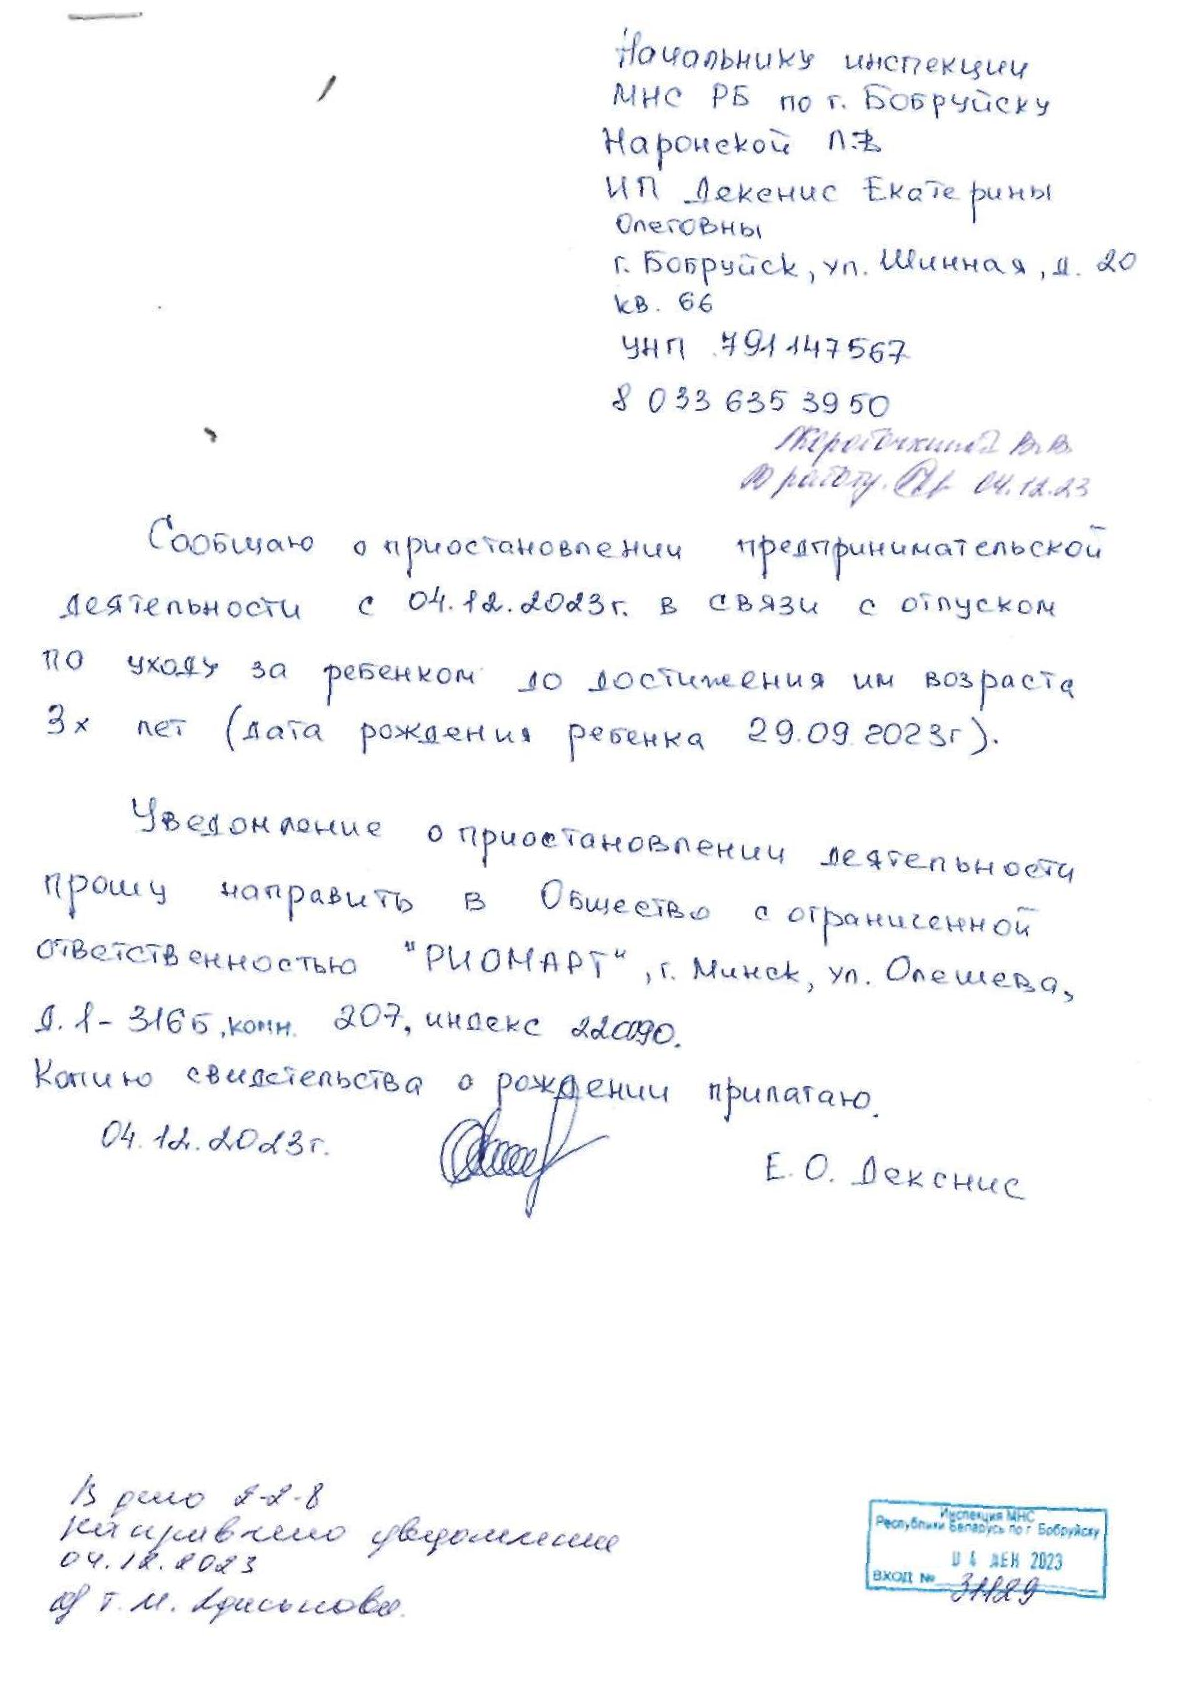 Начальнику инспекции
МНС РБ по г. Бобруйску
Наронской Л.В
ИП Декснис Екатерины
Олеговны
г. Бобруйск, ул. Шинная, д. 20
кв. 66
УНП 791147567
8 033 635 39 50
В.В.
В работу. 04.12.23
Сообщаю о приостановлении предпринимательской
деятельности с 04.12.2023г. в связи с отпуском
по уходу за ребенком до достижения им возраста
3х лет (дата рождения ребенка 29.09.2023г).
Уведомление о приостановлении деятельности
прошу направить в Общество с ограниченной
ответственностью "РИОМАРТ", г. Минск, ул. Олешева,
д. 1-316Б, комн. 207, индекс 220090.
Копию свидетельства о рождении прилагаю.
04.12.2023г.
Е.О. Декснис
В дело 2-2-8
направлено уведомление
04.12.2023
Т.М.
Инспекция МНС
Республики Беларусь по г. Бобруйску
04 ДЕК 2023
ВХОД № 31129